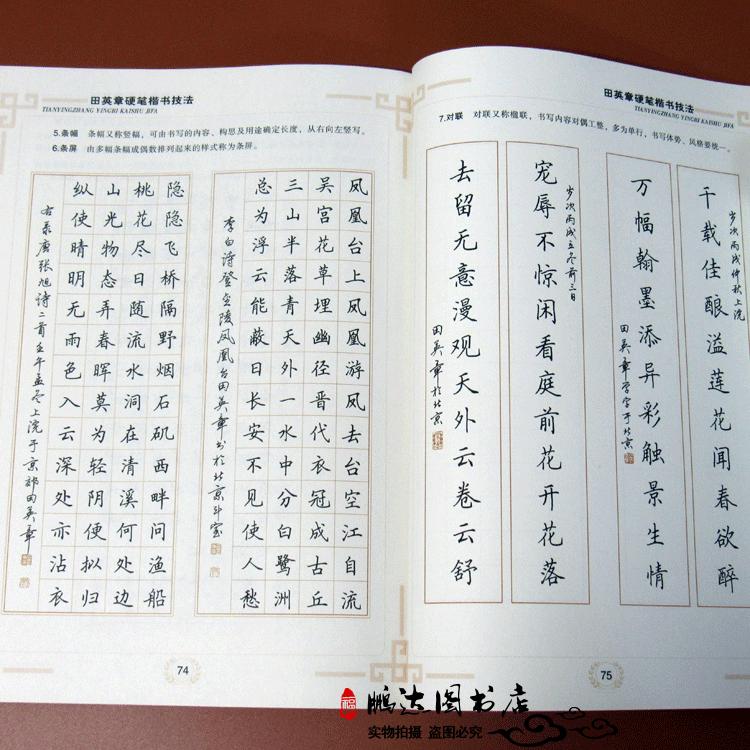 田英章硬笔楷书技法
TIANYINGZHANG YINGBI KAISHU JIFA
5.条幅 条幅又称竖幅，可由书写的内容、构思及用途确定长度，从右向左竖写。
6.条屏 由多幅条幅成偶数排列起来的样式称为条屏。
凤凰台上凤凰游凤去台空江自流
吴宫花草埋幽径晋代衣冠成古丘
三山半落青天外一水中分白鹭洲
总为浮云能蔽日长安不见使人愁
李白诗登金陵凤凰台田英章书于北京斗室
隐隐飞桥隔野烟石矶西畔问渔船
桃花尽日随流水洞在清溪何处边
山光物态弄春晖莫为轻阴便拟归
纵使晴明无雨色入云深处亦沾衣
右录唐张旭诗二首壬午孟冬上浣于京郊田英章
74
田英章硬笔楷书技法
TIANYINGZHANG YINGBI KAISHU JIFA
7.对联 对联又称楹联，书写内容对偶工整，多为单行，书写体势、风格要统一。
岁次丙戌仲秋上浣
千载佳酿溢莲花闻春欲醉
万幅翰墨添异彩触景生情
田英章学字于北京
岁次丙戌立冬前三日
宠辱不惊闲看庭前花开花落
去留无意漫观天外云卷云舒
田英章于北京
75
福
鹏达图书店
实物拍摄 盗图必究